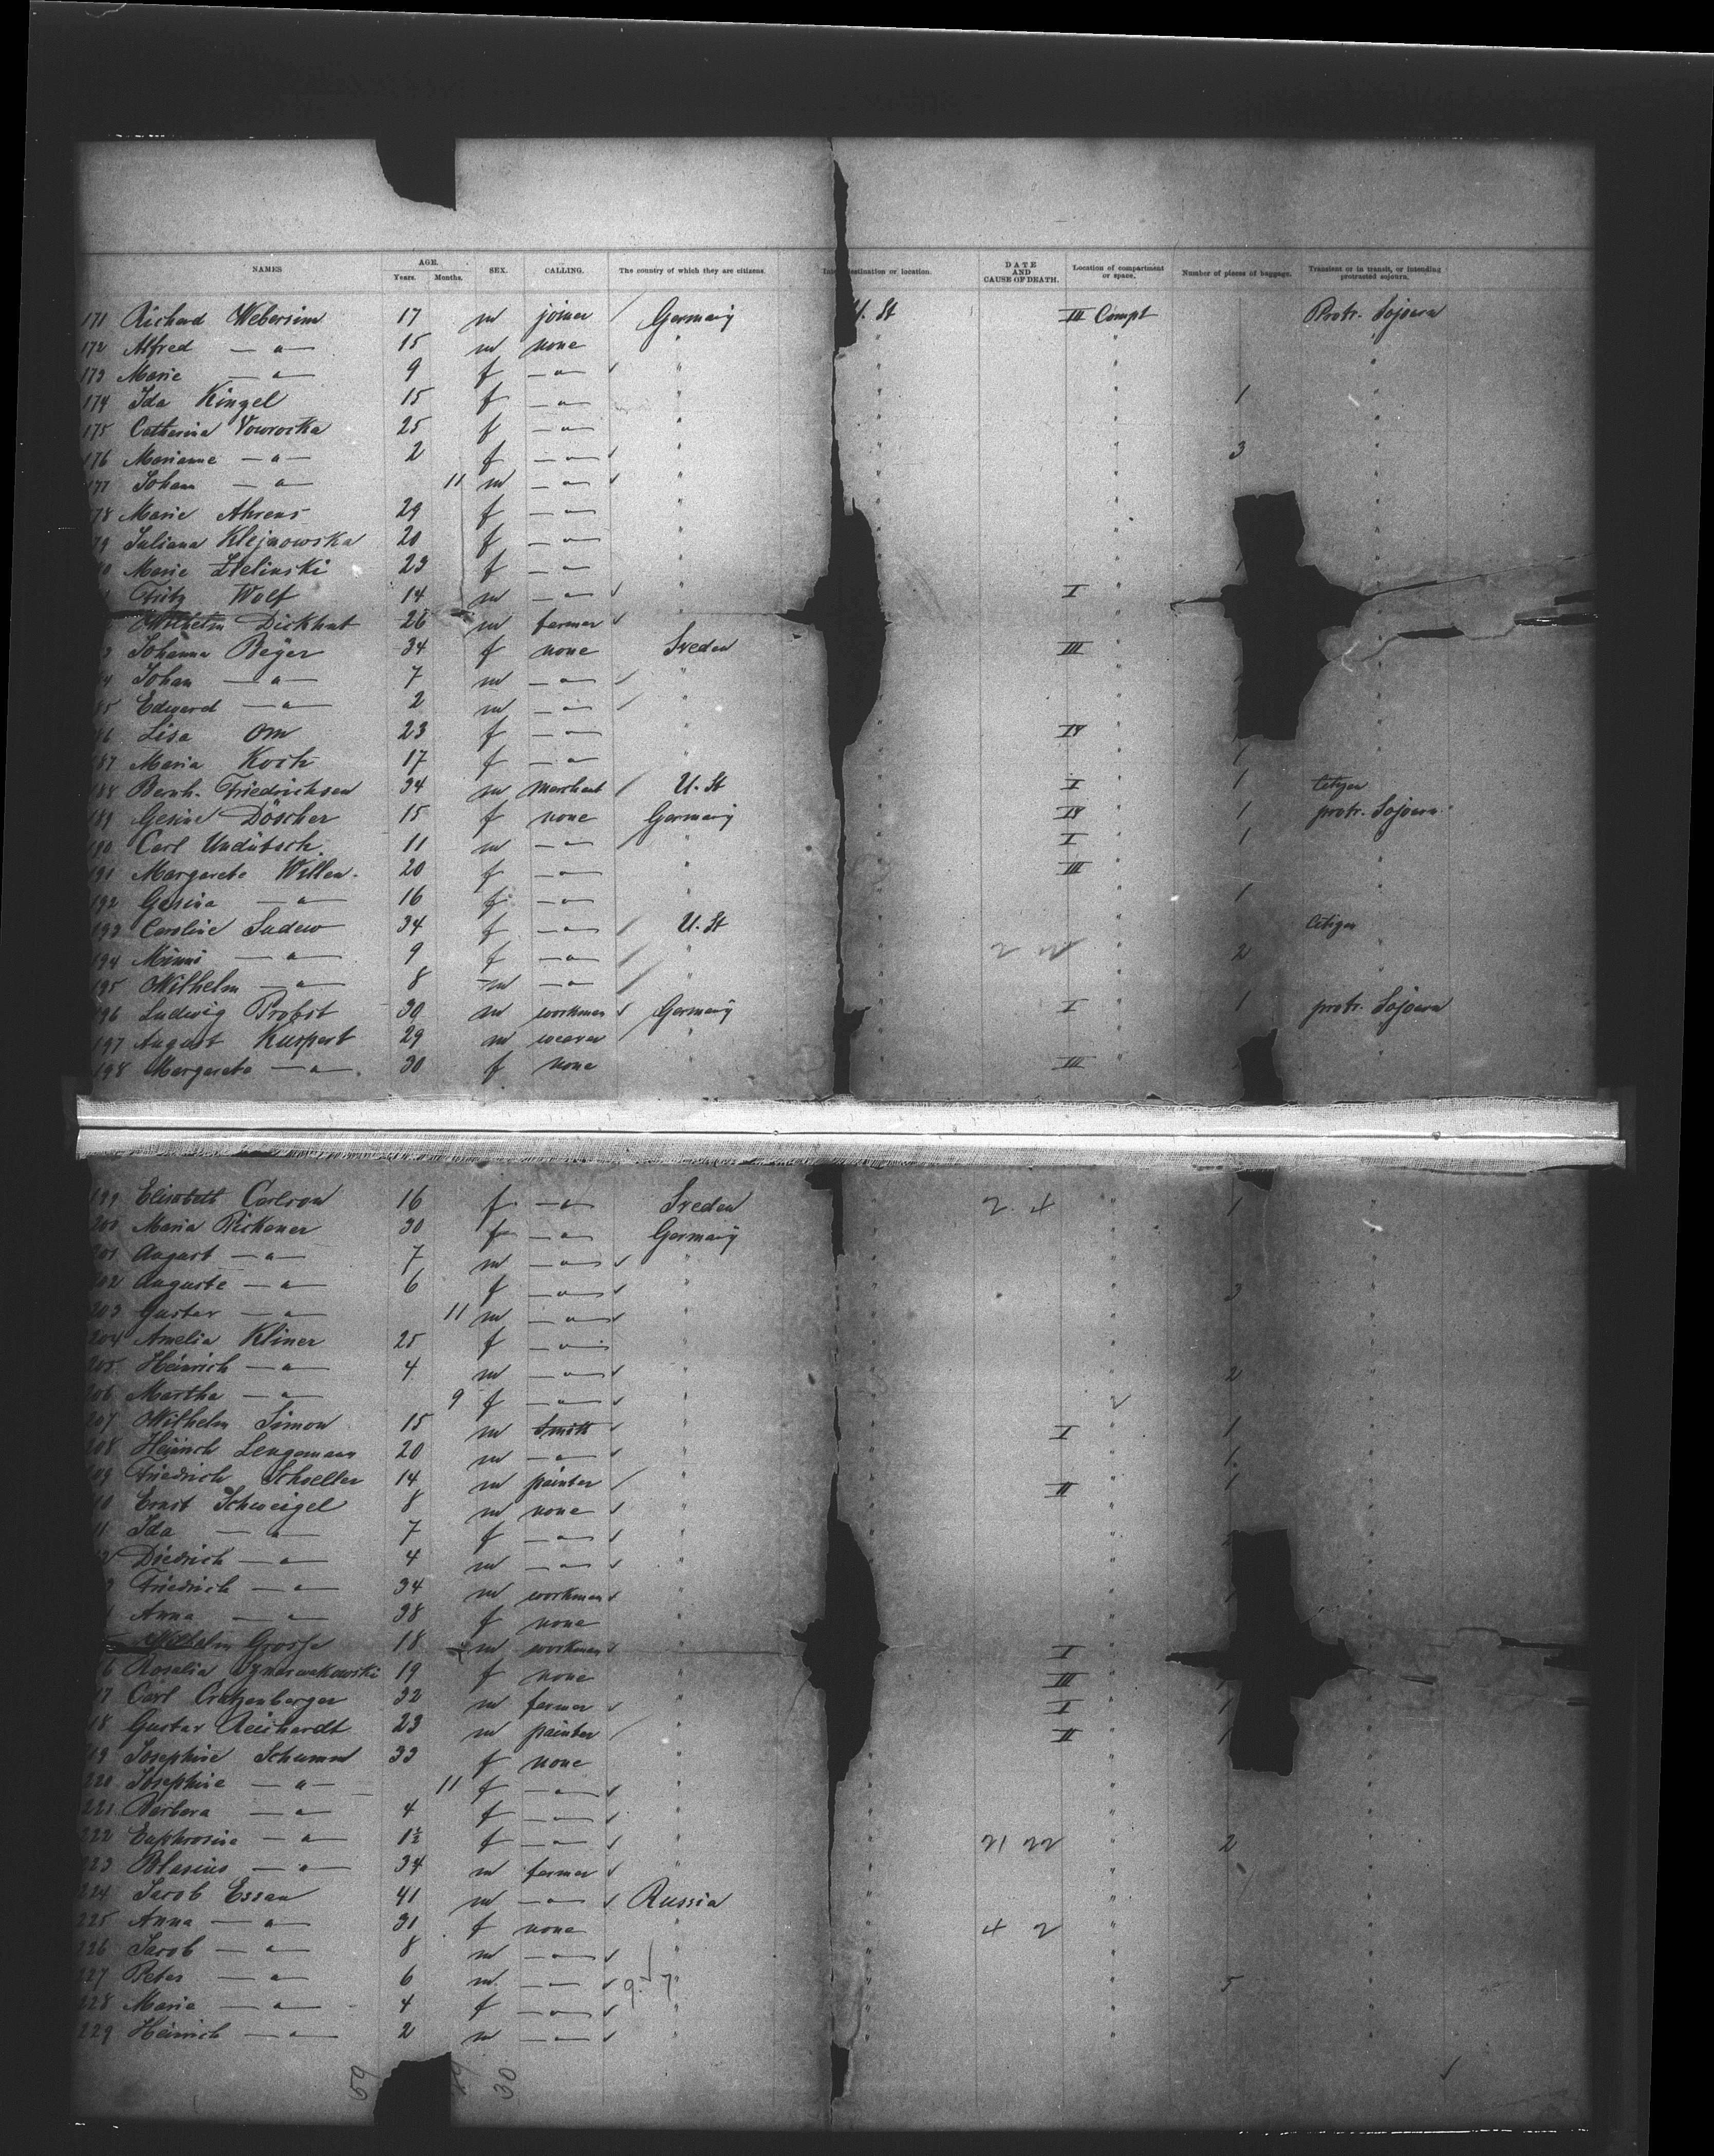 NAMES AGE. Years. Months. SEX. CALLING. The country of which they are citizens. destination or location. DATE AND CAUSE OF DEATH. Location of compartment or space. Number of pieces of baggage. Transient or in transit, or intending protracted sojourn.
171 Richard Webersinn 17 m joiner / Germany U. St III Compt Protr. Sojourn
172 Alfred — " — 15 m none " " " "
173 Marie — " — 9 f — " — ✓ " " " "
174 Ida Kinzel 15 f — " — " " " 1 "
175 Catharina Nowrocka 25 f — " — " " " "
176 Marianne — " — 2 f — " — ✓ " " " 3 "
177 Johann — " — 11 m — " — ✓ " " " "
178 Marie Ahrens 29 f — " — " " "
79 Juliana Klejnowska 20 f — " — " " " "
0 Marie Zielinski 23 f — " — " " " "
Fritz Wolf 14 m — " — ✓ " I "
Wilhelm Dickhut 26 m farmer ✓ " "
3 Johanna Beyer 34 f none Sveden III "
4 Johan — " — 7 m — " — ✓ " " "
85 Edward — " — 2 m — " — ✓ " " "
86 Lisa Om 23 f — " — " " IV " "
187 Maria Koch 17 f — " — " " " 1 "
188 Bernh. Friedrichsen 34 m merchant / U. St " I " 1 Citizen
189 Gesine Döscher 15 f none Germany " IV " 1 protr. Sojourn
190 Carl Undütsch 11 m — " — / " " I " 1 "
191 Margarete Willen 20 f — " — " " III " "
192 Gesina — " — 16 f — " — " " " 1 "
193 Caroline Sudew 34 f — " — / U. St " " Citizen
194 Minni — " — 9 f — " — / " " " 2 "
195 Wilhelm — " — 8 m — " — / " " " "
196 Ludwig Probst 30 m workman ✓ Germany " I " 1 protr. Sojourn
197 August Kuspert 29 m weaver / " " " "
198 Margareta — " — 30 f none " " III " "
199 Elisabeth Carlson 16 f — " — Sveden 2. 4 " 1 "
200 Maria Pickaner 30 f — " — Germany " " "
201 August — " — 7 m — " — ✓ " " " "
202 Auguste — " — 6 f — " — ✓ " " " 3 "
203 Gustav — " — 11 m — " — ✓ " " " "
204 Amelia Kliner 25 f — " — " " " "
205 Heinrich — " — 4 m — " — ✓ " " " 2 "
206 Martha — " — 9 f — " — ✓ " " "
207 Wilhelm Simon 15 m smith ✓ " " I " 1 "
208 Heinrich Lengemann 20 m — " — ✓ " " " 1 "
209 Friedrich Schoeller 14 m painter / " " II " 1 "
10 Ernst Schweigel 8 m none ✓ " " " "
11 Ida — " — 7 f — " — ✓ " " "
2 Diedrich — " — 4 m — " — ✓ " " "
3 Friedrich — " — 34 m workman ✓ " " "
Anna — " — 38 f none " " "
Wilhelm Grosse 18 m workman ✓ " I " "
6 Rosalia 19 f none " III " "
17 Carl Cratzenberger 32 m farmer ✓ " I " 1 "
18 Gustav Reichardt 23 m painter / " II " 1 "
19 Josephine Schumm 33 f none " " "
220 Josephine — " — 11 f — " — ✓ " " " "
221 Barbara — " — 4 f — " — ✓ " " " "
222 Euphrosina — " — 1½ f — " — ✓ " " 21 22 " 2 "
223 Blasius — " — 34 m farmer ✓ " " " "
224 Jacob Essau 41 m — " — ✓ Russia " " "
225 Anna — " — 31 f none " " 4 2 " "
226 Jacob — " — 8 m — " — ✓ " " " "
227 Peter — " — 6 m — " — ✓ 9. 7 " " " 5 "
228 Maria — " — 4 f — " — ✓ " " " "
229 Heinrich — " — 2 m — " — ✓ " " " "
59 29 30